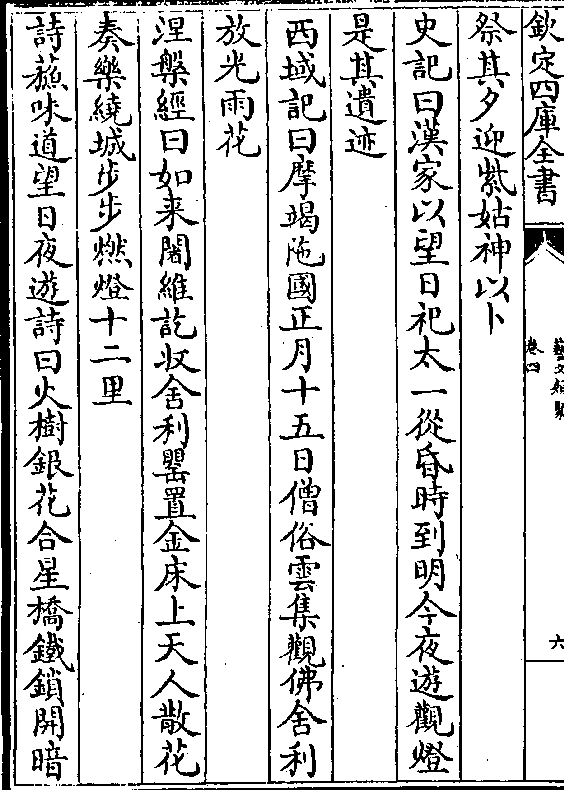 欽定四庫全書
藝文類聚
卷四
六
祭其夕迎紫姑神以卜
史記曰漢家以望日祀太一從昏時到明今夜遊觀燈
是其遺迹
西域記曰摩竭陁國正月十五日僧俗雲集觀佛舍利
放光雨花
涅槃經曰如来闍維訖收舍利罌置金床上天人散花
奏樂繞城步步燃燈十二里
詩蘓味道望日夜遊詩曰火樹銀花合星橋鐵鎖開暗